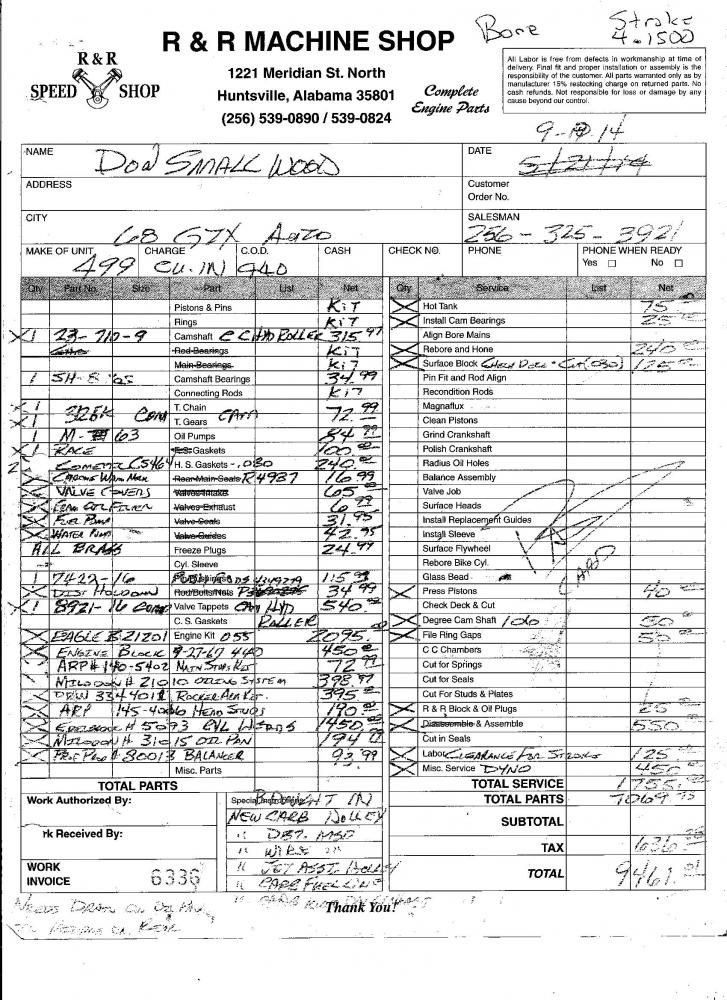 Bore
Stroke
4.1500
R & R
SPEED SHOP
R & R MACHINE SHOP
1221 Meridian St. North
Huntsville, Alabama 35801
(256) 539-0890 / 539-0824
Complete
Engine Parts
All Labor is free from defects in workmanship at time of
delivery. Final fit and proper installation or assembly is the
responsibility of the customer. All parts warranted only as by
manufacturer 15% restocking charge on returned parts. No
cash refunds. Not responsible for loss or damage by any
cause beyond our control.
NAME DON SMALLWOOD DATE
ADDRESS Customer
Order No.
CITY SALESMAN
68 GTX 256-325-3921
MAKE OF UNIT CHARGE C.O.D. CASH CHECK NO. PHONE PHONE WHEN READY
499 CU.IN 440 Yes No
Qty Part No. Size Part List Net
Pistons & Pins KiT
Rings KiT
1 23-710-9 Camshaft HYD ROLLER 315.97
Rod Bearings KiT
Main Bearings KiT
1 SH-8 Camshaft Bearings 34.99
Connecting Rods KiT
1 328K COM T. Chain CAM 72.99
1 T. Gears
1 M-63 Oil Pumps 54.99
1 RACE Gaskets 100.00
2 COMETIC C5464 H. S. Gaskets - .080 240.00
Rear Main Seals R4987 16.99
VALVE COVERS Valves Intake 65.00
OIL FILTER Valves Exhaust 6.99
FUEL PUMP Valve Seals 31.95
WATER PUMP Valve Guides 42.95
ALL BRASS Freeze Plugs 24.99
Cyl. Sleeve
1 7422-16 PUSHRODS 115.99
DIST HOLDDOWN Rod Bolts/Nuts 34.99
1 8921-16 COMP Valve Tappets CAM HYD 540.00
C. S. Gaskets ROLLER
EAGLE B21201 Engine Kit 055 2095.00
ENGINE BLOCK 9-27-67 440 450.00
ARP# 140-5402 MAIN STUD KIT 72.99
MILODON # 21010 OILING SYSTEM 398.97
334401 ROCKER ARM KIT. 395.00
ARP 145-4006 HEAD STUDS 190.00
EDELBROCK # 5093 CYL HEADS 1450.00
MILODON # 31015 OIL PAN 194.99
PROF PROD # 80013 BALANCER 93.99
Misc. Parts
TOTAL PARTS
Qty Service List Net
Hot Tank 75
Install Cam Bearings 25
Align Bore Mains
Rebore and Hone 240
Surface Block CHECK DECK - CUT (.030) 125
Pin Fit and Rod Align
Recondition Rods
Magnaflux
Clean Pistons
Grind Crankshaft
Polish Crankshaft
Radius Oil Holes
Balance Assembly
Valve Job
Surface Heads
Install Replacement Guides
Install Sleeve
Surface Flywheel
Rebore Bike Cyl.
Glass Bead
Press Pistons 40
Check Deck & Cut
Degree Cam Shaft 50
File Ring Gaps 50
C C Chambers
Cut for Springs
Cut for Seals
Cut For Studs & Plates
R & R Block & Oil Plugs 25
Disassemble & Assemble 550
Cut in Seals
Labor CLEARANCE FOR STROKE 125
Misc. Service DYNO 450
TOTAL SERVICE 1755.00
TOTAL PARTS 7069.75
SUBTOTAL
TAX 636.26
TOTAL 9461.01
Work Authorized By:
rk Received By:
WORK
INVOICE 6336
Special Instructions BROUGHT IN
NEW CARB HOLLEY
" DIST. MSD
" WIRE
" JET ASST. HOLLEY
" CARB FUEL LINE
Thank You!